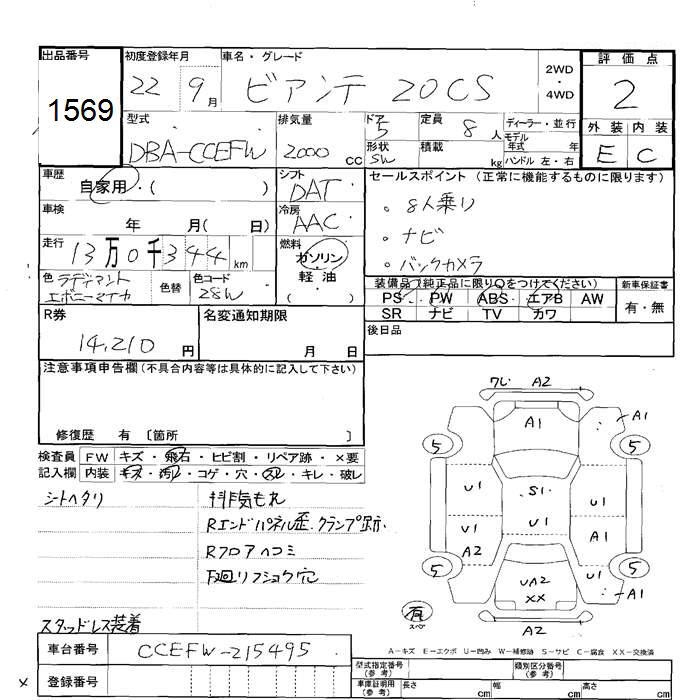 出品番号 初度登録年月 車名・グレード 2WD・4WD 評価点
1569 22 9月 ビアンテ 20CS 2
型式 排気量 ドア 定員 ディーラー・並行 外装 内装
DBA-CCEFW 2000cc 5 8人 モデル年式 年 E C
形状 SW 積載 kg ハンドル 左・右
車歴 シフト セールスポイント (正常に機能するものに限ります)
自家用・( ) DAT
車検 冷房 。8人乗り
年 月( 日) AAC 。ナビ
走行 燃料 。バックカメラ
13万0千344km ガソリン・軽油
色 ラディアント エボニーマイカ 色替 色コード 28W
装備品(純正品に限り○をつけてください) 新車保証書
PS・PW・ABS・エアB・AW 有・無
SR ナビ TV カワ
R券 名変通知期限 後日品
14,210円 月 日
注意事項申告欄(不具合内容等は具体的に記入して下さい)
修復歴 有 〔箇所 〕
検査員 FW キズ・飛石・ヒビ割・リペア跡・×要
記入欄 内装 キズ・汚れ・コゲ・穴・スレ・キレ・破レ
シートヘタリ 排気もれ
Rエンドパネル歪.クランプ跡.
Rフロアヘコミ
下廻リフショク穴
スタッドレス装着
ワレ A2
A1 A1
5 5
U1 S1 U1
U1 U1 A1
A2
5 5
UA2 U1 A1
XX
有 スペア A2
A-キズ E-エクボ U-凹み W-補修跡 S-サビ C-腐食 XX-交換済
車台番号 CCEFW-215495
型式指定番号(参考) 類別区分番号(参考)
× 登録番号
車庫証明用(参考) 長さ cm 幅 cm 高さ cm